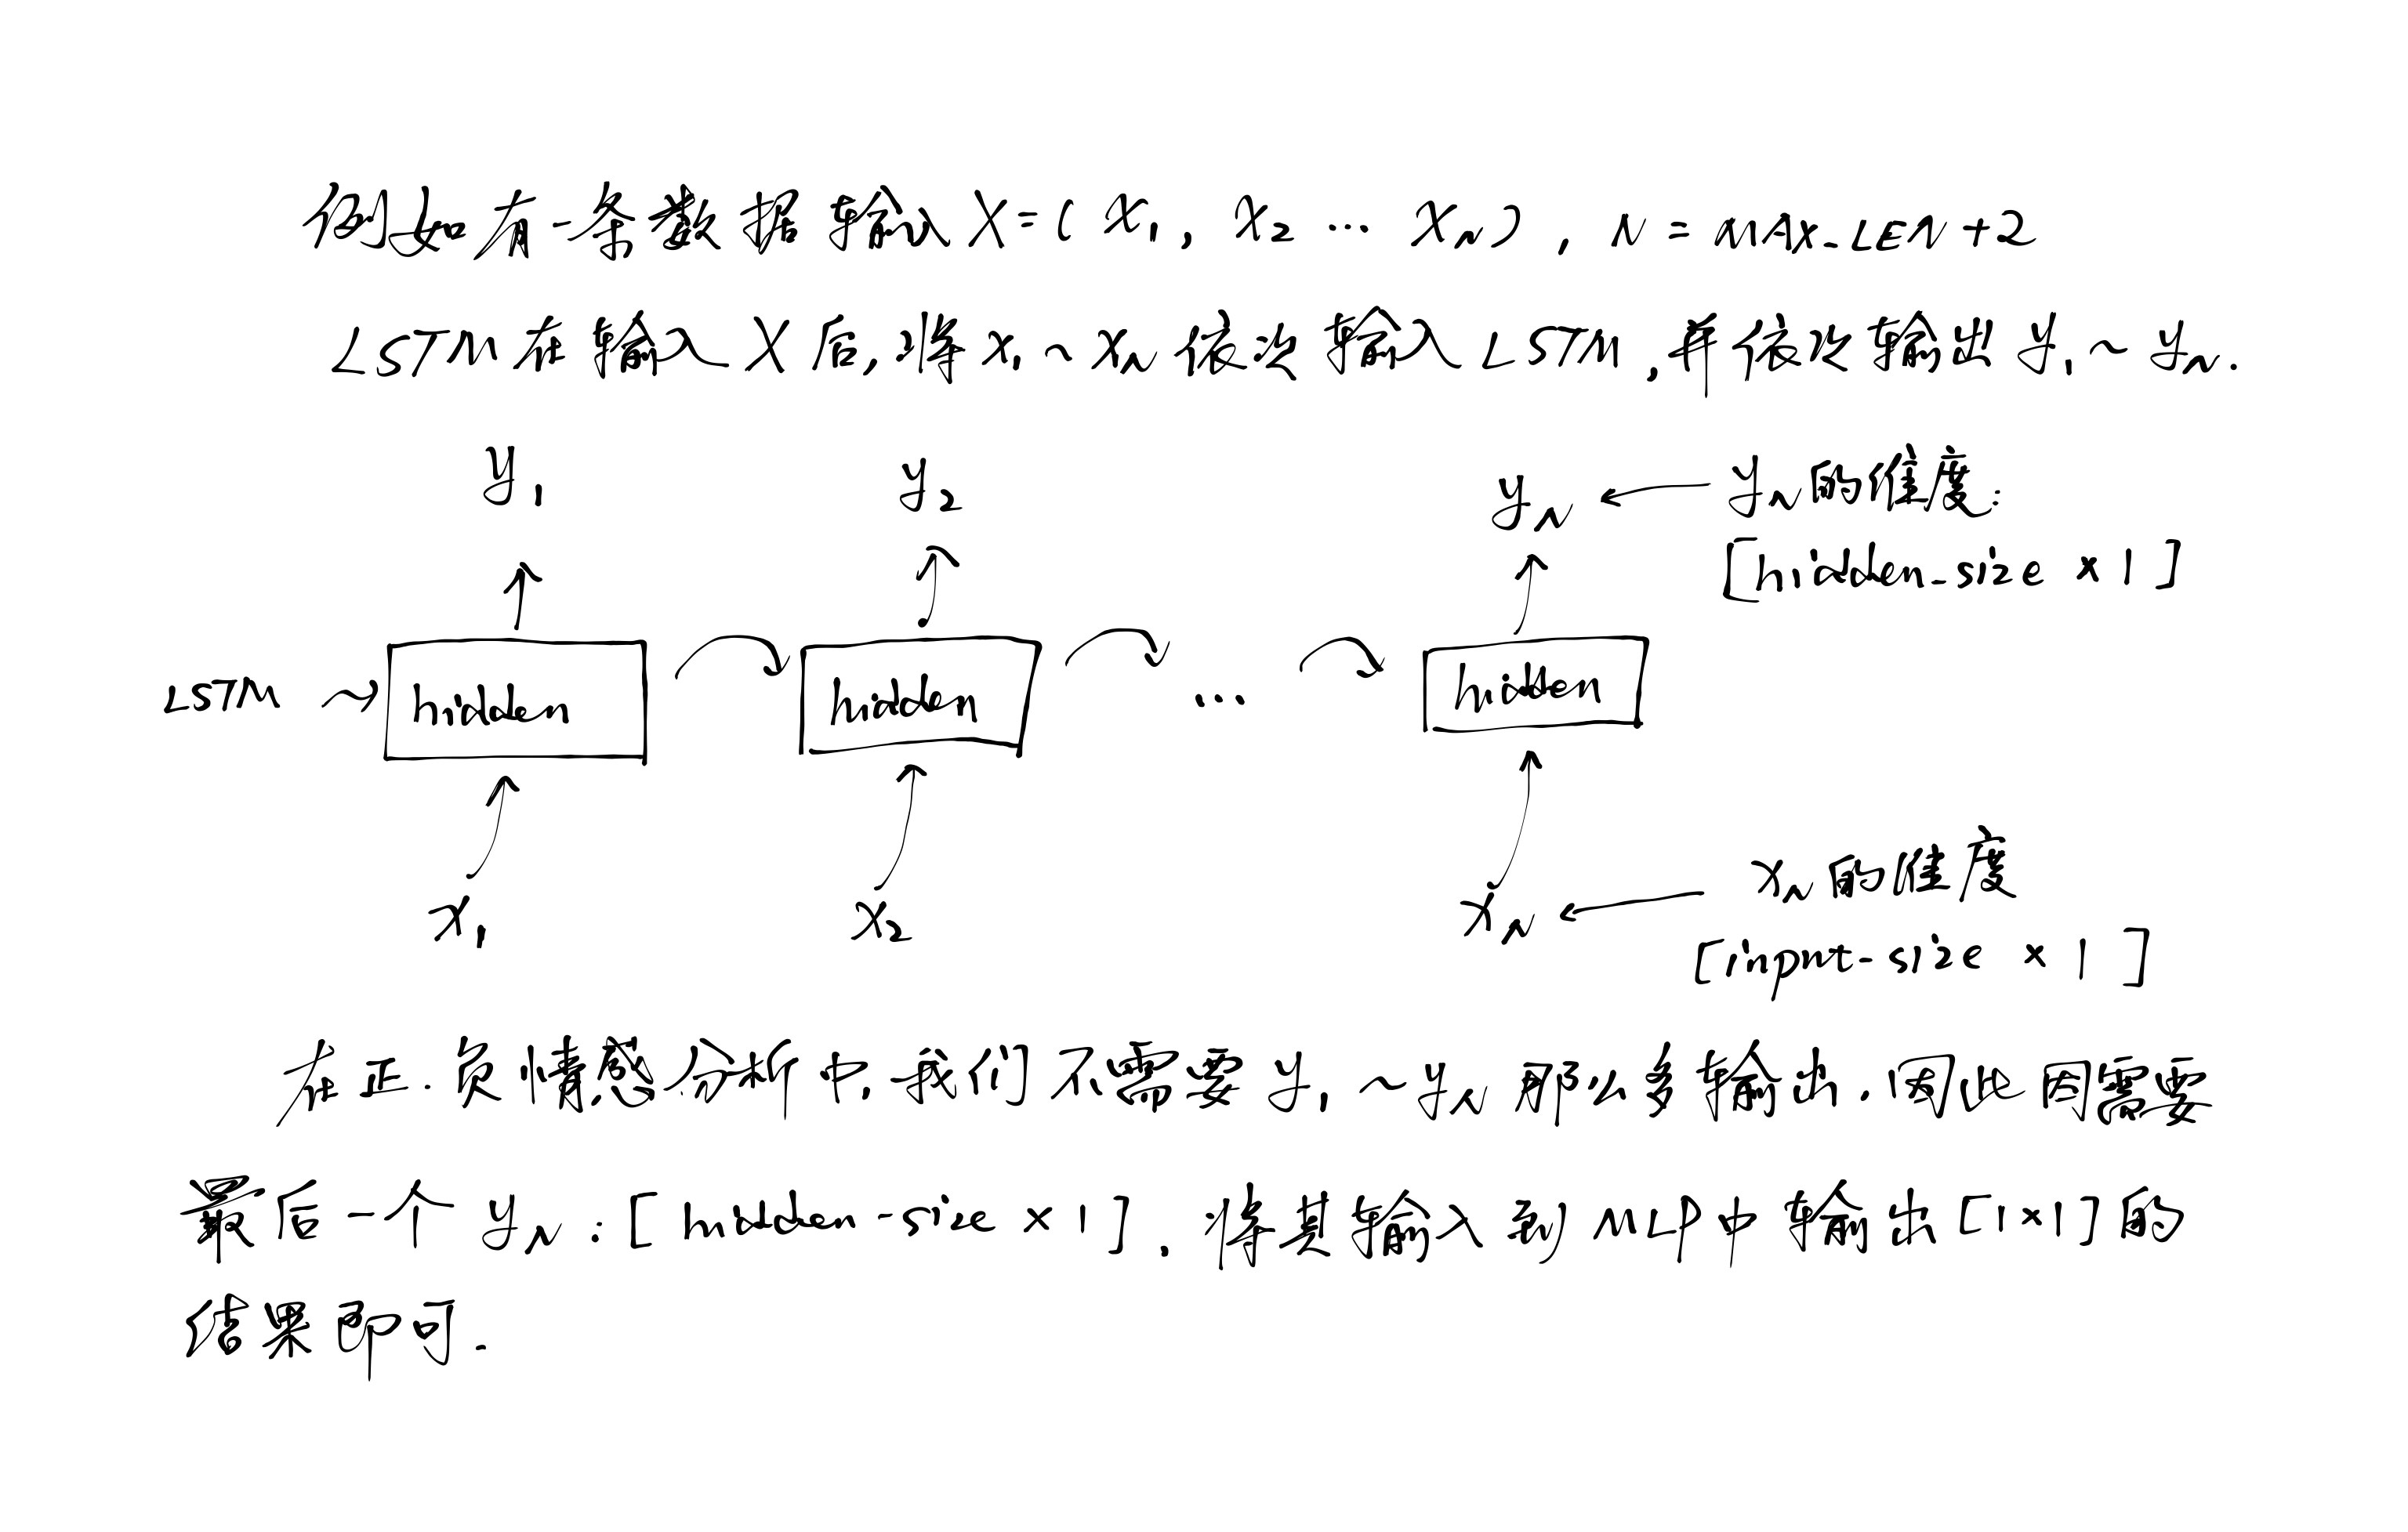 例如有一条数据输入X=( x₁, x₂ … xₙ), N = MAX_LEN+2
LSTM在输入X后,将x₁~xₙ依次输入LSTM,并依次输出y₁~yₙ.
y₁ y₂ yₙ ← yₙ的维度:
[hidden_size × 1]
LSTM hidden hidden … hidden
xₙ的维度
x₁ x₂ xₙ ←
[input-size × 1]
在正.负情感分析中,我们不需要y₁~yₙ那么多输出.因此同需要
最后一个yₙ:[hidden-size × 1].将其输入到MLP中输出[1×1]的
结果即可.